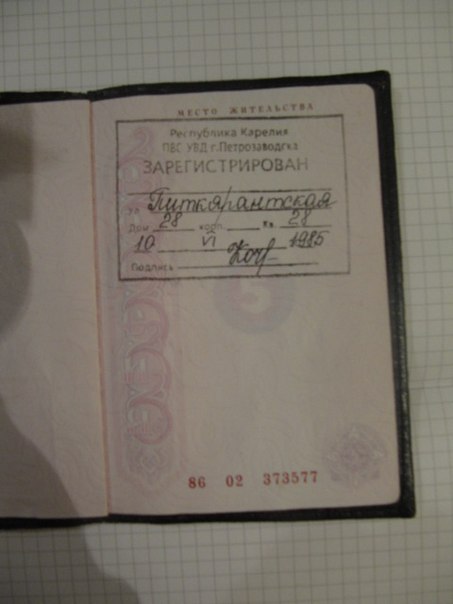 МЕСТО ЖИТЕЛЬСТВА
Республика Карелия
ПВС УВД г.Петрозаводска
ЗАРЕГИСТРИРОВАН
Ул Питкярантская
Дом 28 корп. кв. 28
10 VI 1985
Подпись
86 02 373577